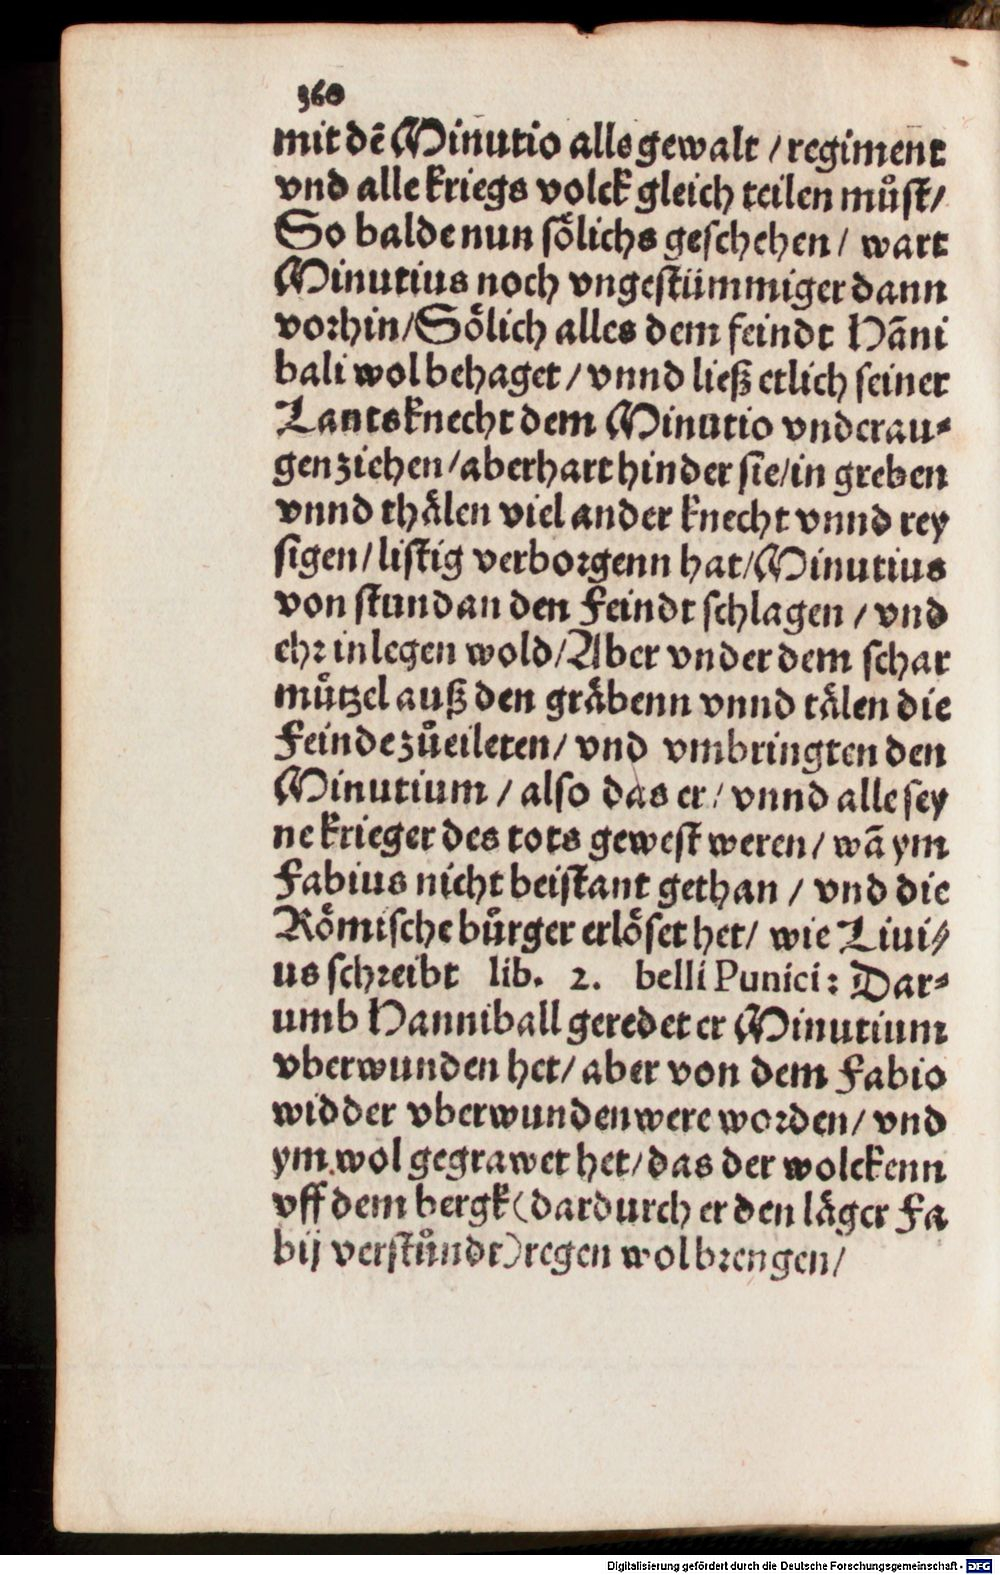 360
mit dē Minutio alls gewalt / regiment
vnd alle kriegs volck gleich teilen můſt/
So balde nun ſoͤlichs geſchehen / wart
Minutius noch vngeſtümmiger dann
vorhin/Soͤlich alles dem feindt Hāni
bali wol behaget / vnnd ließ etlich ſeiner
Lantsknecht dem Minutio vnder au⸗
gen ziehen/aber hart hinder ſie/in greben
vnnd thaͤlen viel ander knecht vnnd rey
ſigen/ liſtig verborgenn hat/Minutius
von ſtund an den Feindt ſchlagen / vnd
ehr inlegen wold/Aber vnder dem ſchar
můtzel auß den graͤbenn vnnd taͤlen die
Feinde zůeileten/ vnd vmbringten den
Minutium / alſo das er/ vnnd alle ſey
ne krieger des tots geweſt weren/ wā ym
Fabius nicht beiſtant gethan / vnd die
Roͤmiſche bůrger erloͤſet het/ wie Liui⸗
us ſchreibt lib. 2. belli Punici: Dar⸗
umb Hanniball geredet er Minutium
vberwunden het/ aber von dem Fabio
widder vberwunden were worden/ vnd
ym wol gegrawet het/das der wolckenn
vff dem bergk(dardurch er den laͤger Fa
bij verſtůndt)regen wol brengen/
Digitalisierung gefördert durch die Deutsche Forschungsgemeinschaft - DFG